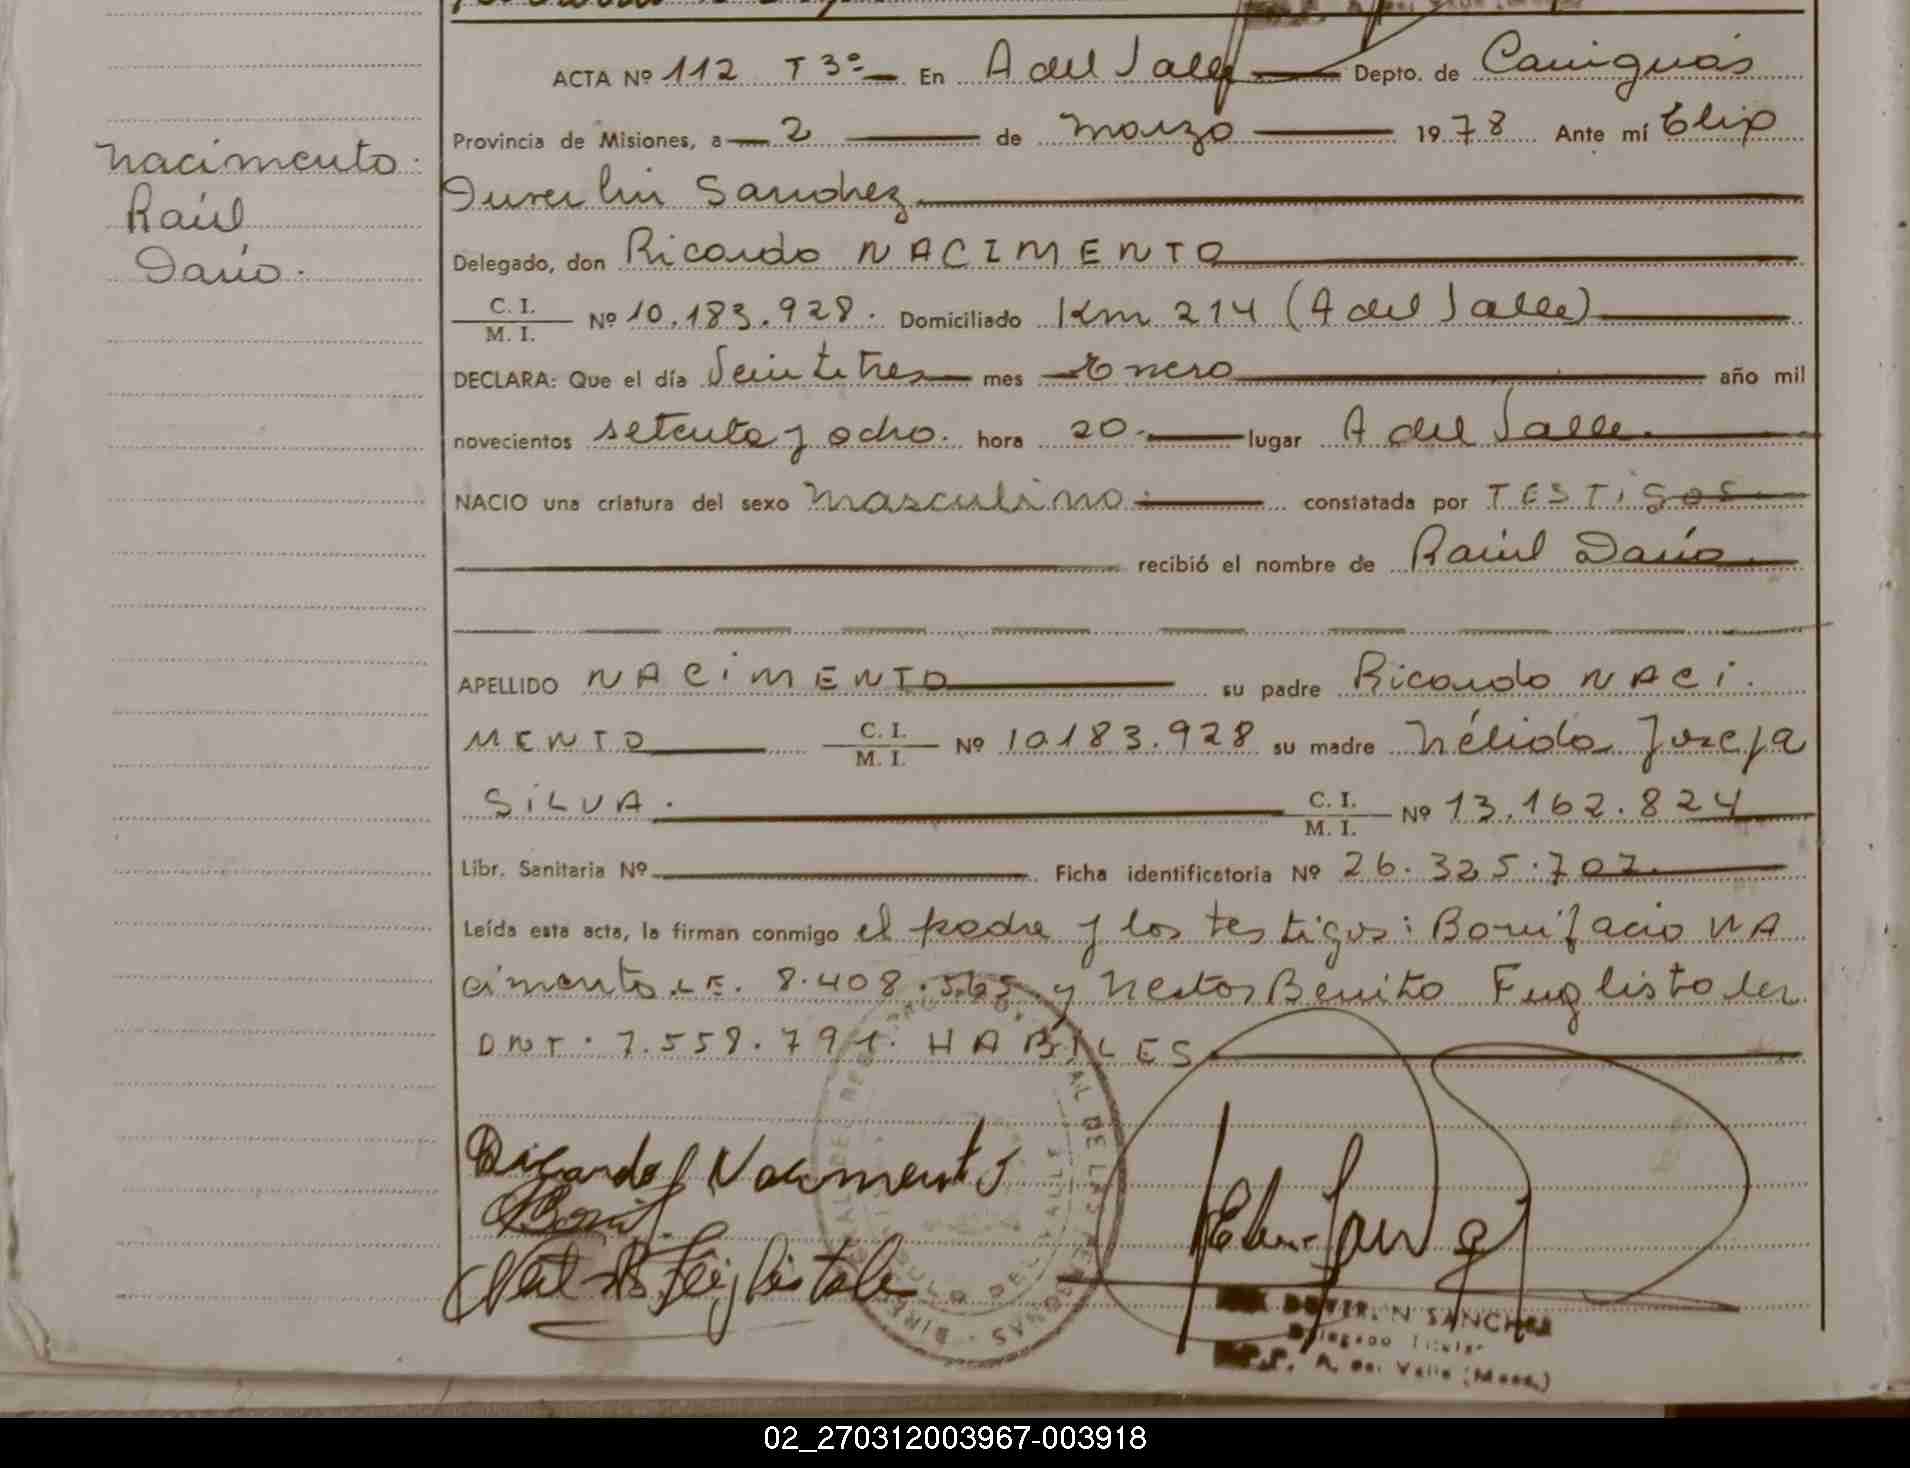 ACTA Nº 112 T 3º En A del Valle Depto. de Cainguás
Provincia de Misiones, a 2 de Marzo 1978 Ante mí Elix
Nacimento:
Raúl
Darío.
Sanchez
Delegado, don Ricardo NACIMENTO
C. I.
M. I. Nº 10.183.928. Domiciliado Km 214 (A del Valle)
DECLARA: Que el día Veintitres mes Enero año mil
novecientos setenta y ocho. hora 20. lugar A del Valle.
NACIO una criatura del sexo Masculino. constatada por TESTIGOS
recibió el nombre de Raúl Darío
APELLIDO NACIMENTO su padre Ricardo NACI.
MENTO C. I.
M. I. Nº 10183.928 su madre Nélida
SILVA. C. I.
M. I. Nº 13.162.824
Libr. Sanitaria Nº Ficha identificatoria Nº 26.325.707.
Leída esta acta, la firman conmigo el padre y los testigos: Bonifacio NA
cimento L.E. 8.408.565 y Nestor Benito Fuglistaler
DNI. 7.558.791. HABILES
Ricardo Nacimento
SANCHEZ
Delegado Titular
A. del Valle (Mnes.)
02_270312003967-003918